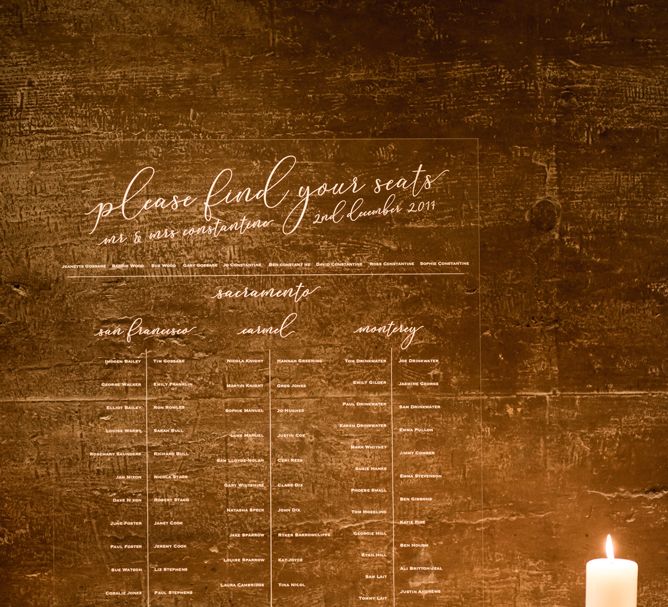 please find your seats
mr & mrs constantine 2nd december 2019
Jeanette Gossage Robin Wood Sue Wood Gary Gossage Jo Constantine Ben Constantine David Constantine Ross Constantine Sophie Constantine
sacramento
san francisco carmel monterey
Imogen Bailey Tim Gossage Nicola Knight Hannah Greering Tom Drinkwater Joe Drinkwater
George Walker Emily Franklin Martin Knight Greg Jones Emily Gilder Jasmine George
Elliot Bailey Ron Bowler Sophie Manuel Jo Hughes Paul Drinkwater Sam Drinkwater
Louise Sarah Bull Luke Manuel Justin Cox Karen Drinkwater Emma Pullon
Rosemary Saunders Richard Bull Sam Lloyds-Nolan Ceri Rees Mark Whitney Jimmy Comber
Jan Nixon Nichola Stagg Gary Wiltshire Clare Dix Susie Hanks Emma Stevenson
Dave Nixon Robert Stagg Natasha Speck John Dix Phoebe Small Ben Gibbons
June Porter Janet Cook Jake Sparrow Ryker Barrowcliffe Tom Moseling Katie Pike
Paul Porter Jeremy Cook Louise Sparrow Kat Joyce Georgie Hill Ben Housh
Sue Watson Liz Stephens Laura Cambridge Tina Nicol Ryan Hill Ali Brittonuzal
Coralie Jones Paul Stephens Sam Lait Justin Andrews
Tommy Lait